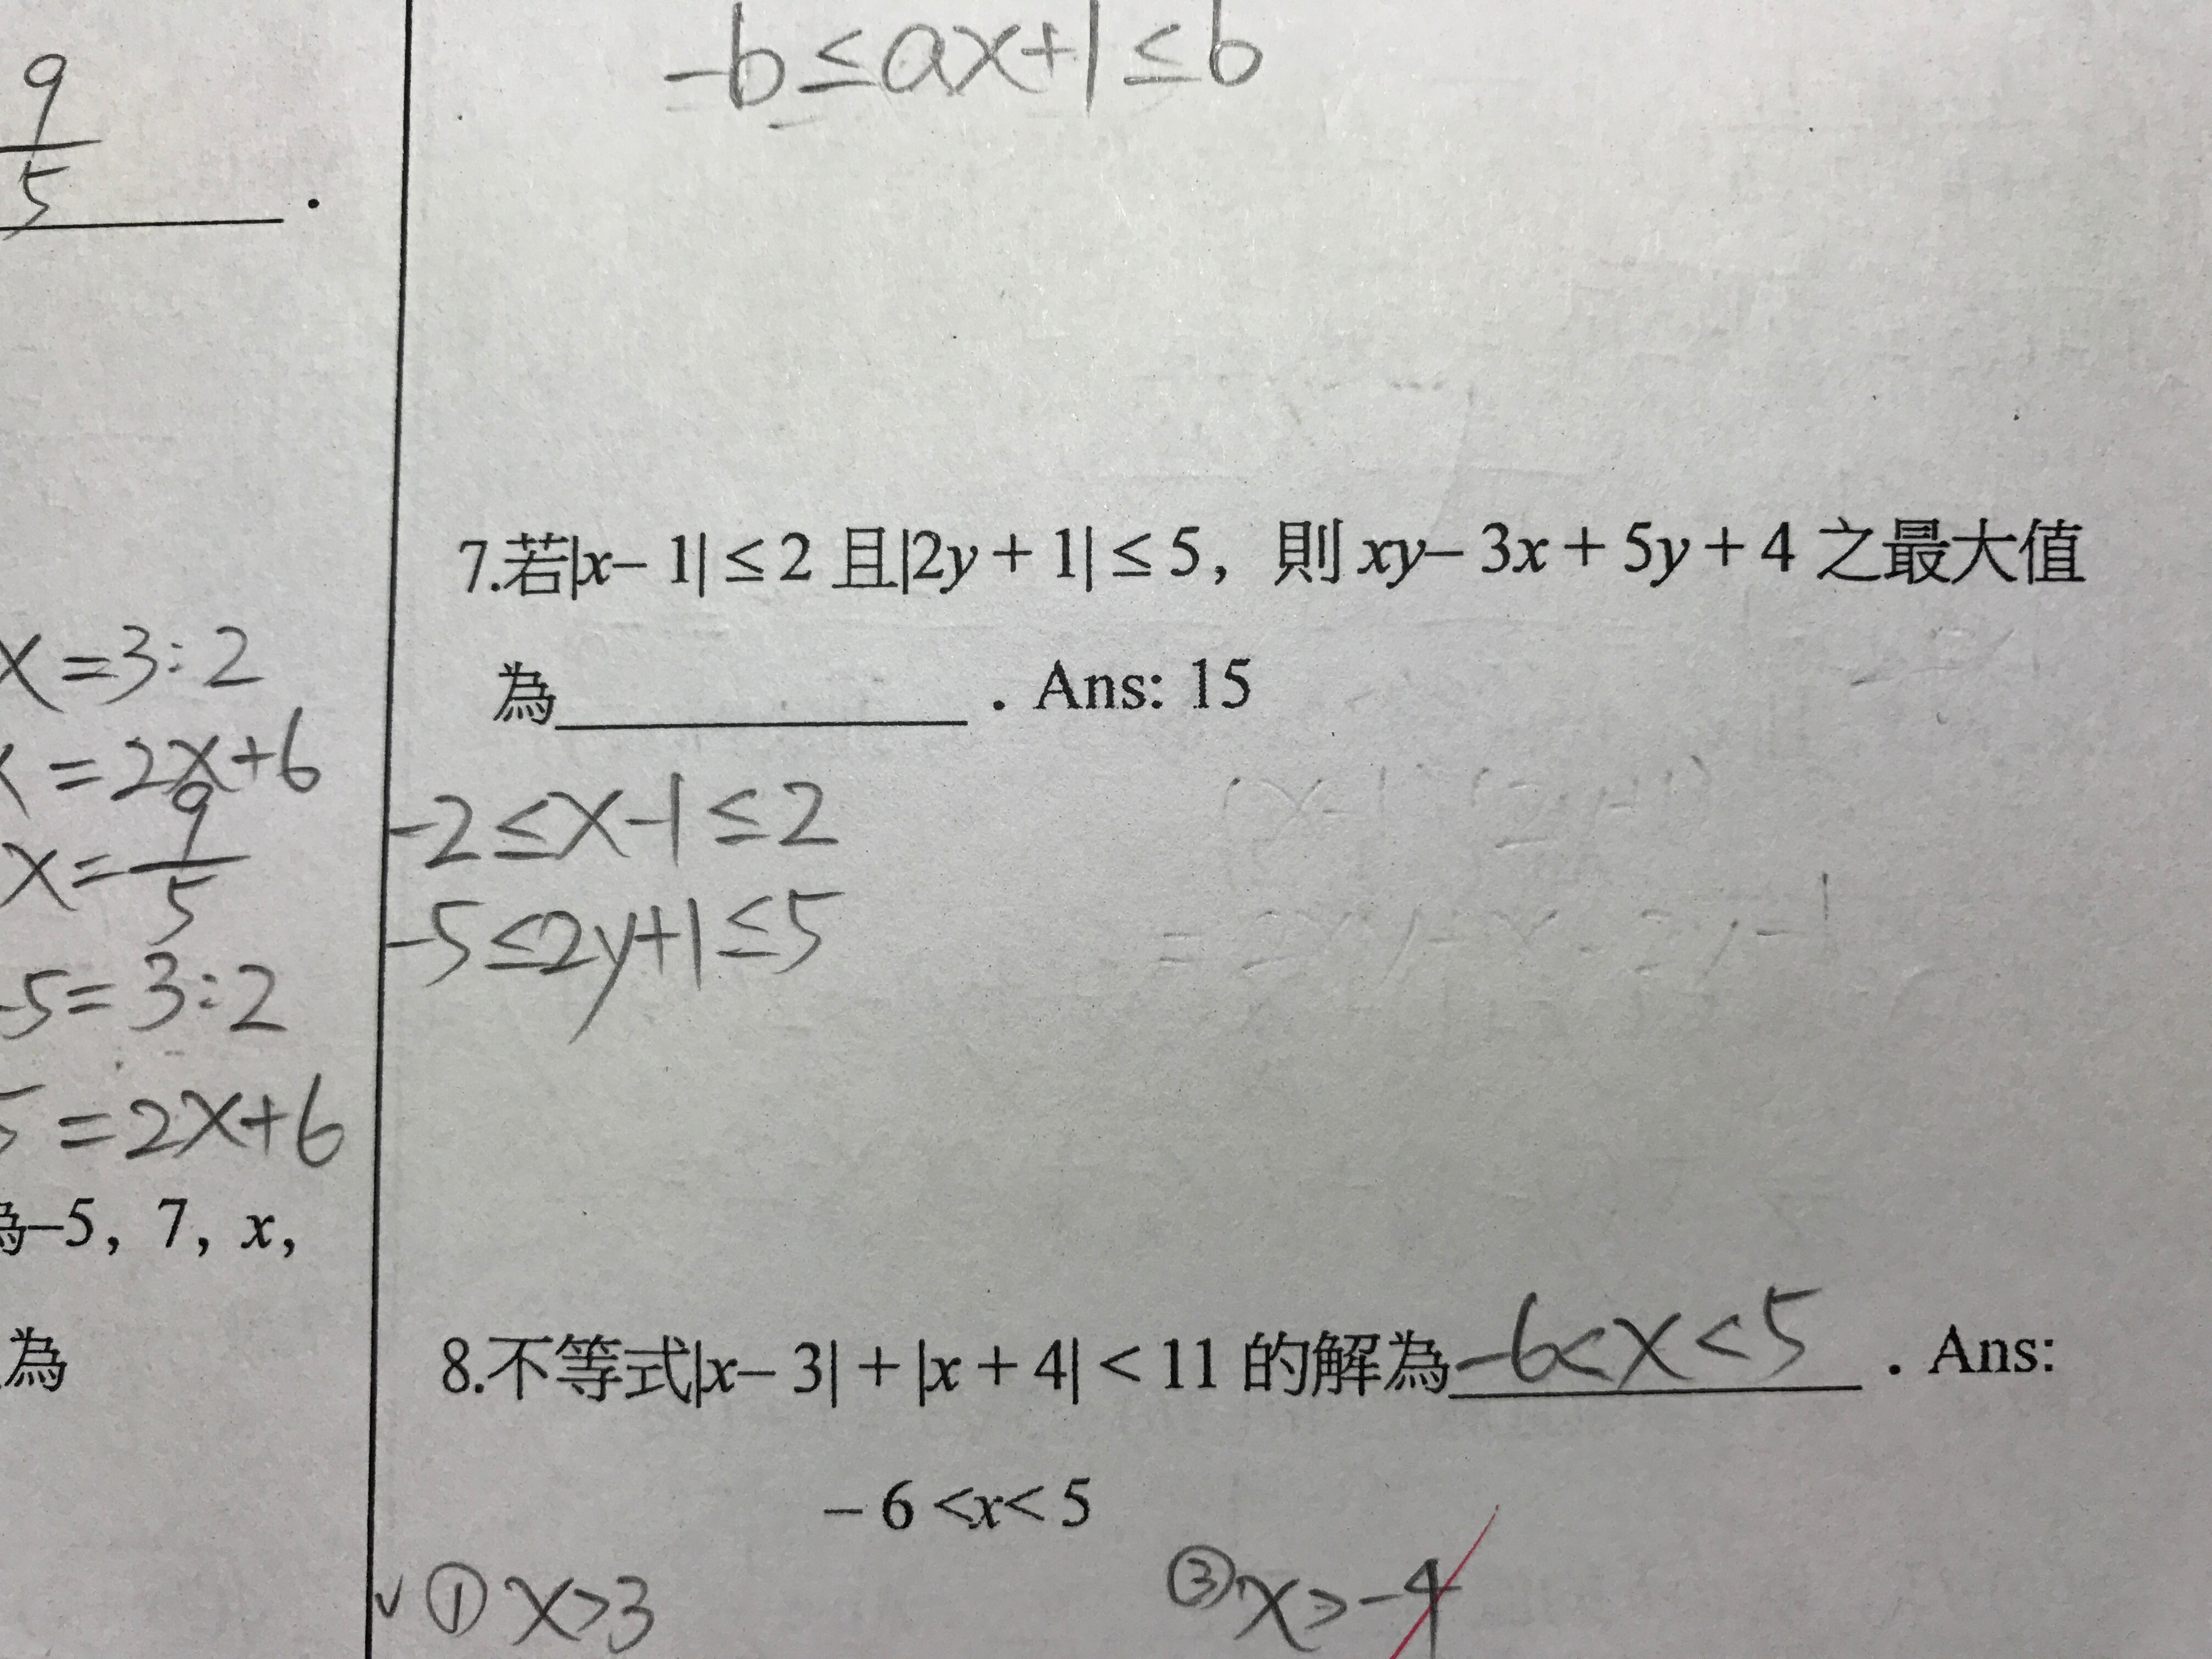 9
5
.
x=3:2
=2x+6
x=9/5
-5=3:2
5=2x+6
為–5, 7, x,
為
-b≤ax+1≤b
7.若|x– 1| ≤ 2 且|2y + 1| ≤ 5, 則 xy– 3x + 5y + 4 之最大值
為____________. Ans: 15
-2≤x-1≤2
-5≤2y+1≤5
8.不等式|x– 3| + |x + 4| < 11 的解為-6<x<5. Ans:
– 6 <x< 5
✓①x>3 ③x>-4